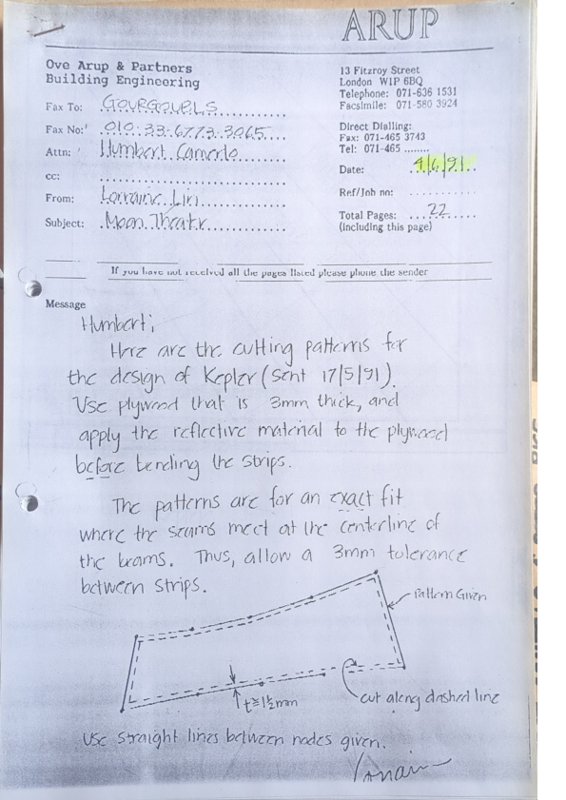 ARUP
Ove Arup & Partners
Building Engineering
13 Fitzroy Street
London W1P 6BQ
Telephone: 071-636 1531
Facsimile: 071-580 3924
Fax To: GOURGOUBLS
Fax No: 010.33.6773.3065
Attn: Humbert Camerlo
cc:
From: Lorraine Lin
Subject: Moon Theatr
Direct Dialling:
Fax: 071-465 3743
Tel: 071-465 ........
Date: 4/6/91
Ref/Job no: ............
Total Pages: ...22......
(including this page)
If you have not received all the pages listed please phone the sender
Message
Humbert;
Here are the cutting patterns for
the design of Kepler (sent 17/5/91).
Use plywood that is 3mm thick, and
apply the reflective material to the plywood
before bending the strips.
The patterns are for an exact fit
where the seams meet at the centerline of
the beams. Thus, allow a 3mm tolerance
between strips.
Pattern Given
t≅1½mm
cut along dashed line
Use straight lines between nodes given.